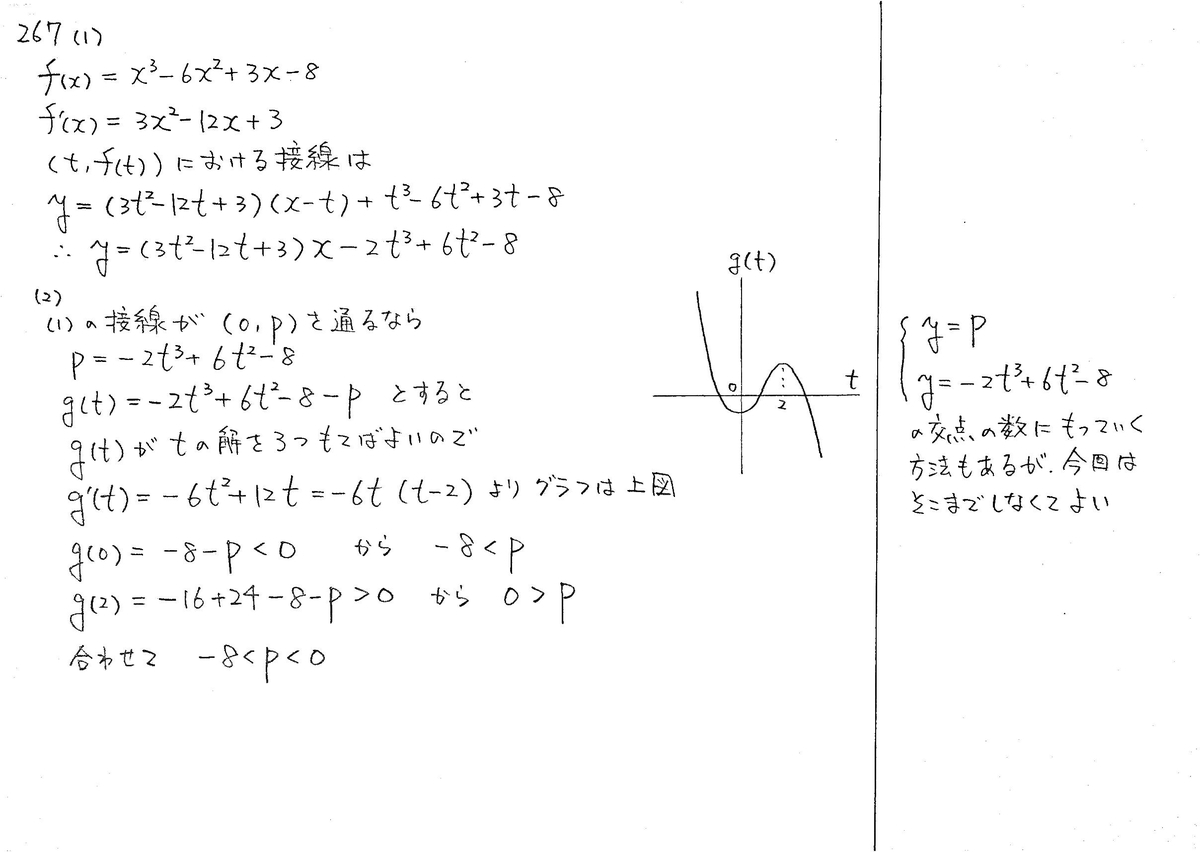 267 (1)
f(x) = x³-6x²+3x-8
f'(x) = 3x²-12x+3
(t, f(t)) における接線は
y = (3t²-12t+3)(x-t)+t³-6t²+3t-8
∴ y = (3t²-12t+3)x-2t³+6t²-8
(2)
(1)の接線が (0, p) を通るなら
p = -2t³+6t²-8
g(t) = -2t³+6t²-8-p とすると
g(t)が tの解を3つもてばよいので
g'(t) = -6t²+12t = -6t(t-2) よりグラフは上図
g(0) = -8-p < 0 から -8 < p
g(2) = -16+24-8-p > 0 から 0 > p
合わせて -8 < p < 0
g(t)
0
2
t
y = p
y = -2t³+6t²-8
の交点の数にもっていく
方法もあるが、今回は
そこまでしなくてよい